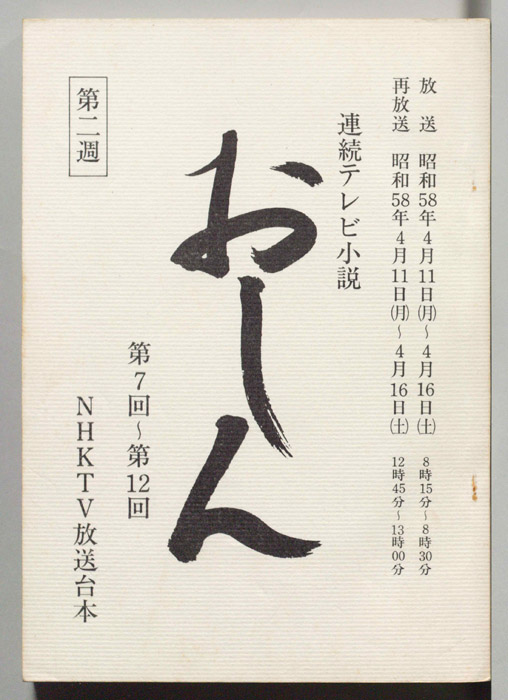 放送 昭和58年4月11日㈪～4月16日㈯ 8時15分～8時30分
再放送 昭和58年4月11日㈪～4月16日㈯ 12時45分～13時00分
連続テレビ小説
おしん
第7回～第12回
NHKTV放送台本
第二週